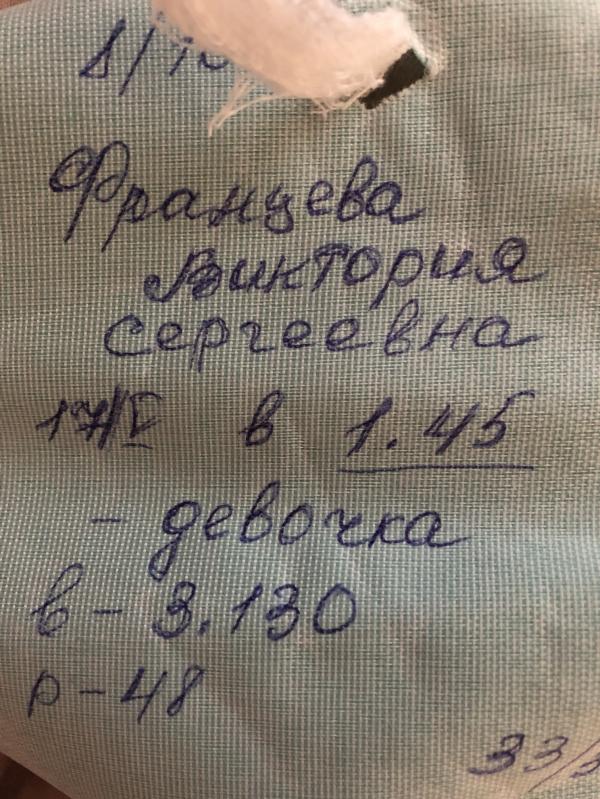 Францева
Виктория
Сергеевна
17/V в 1.45
- девочка
в - 3.130
р - 48
33/3